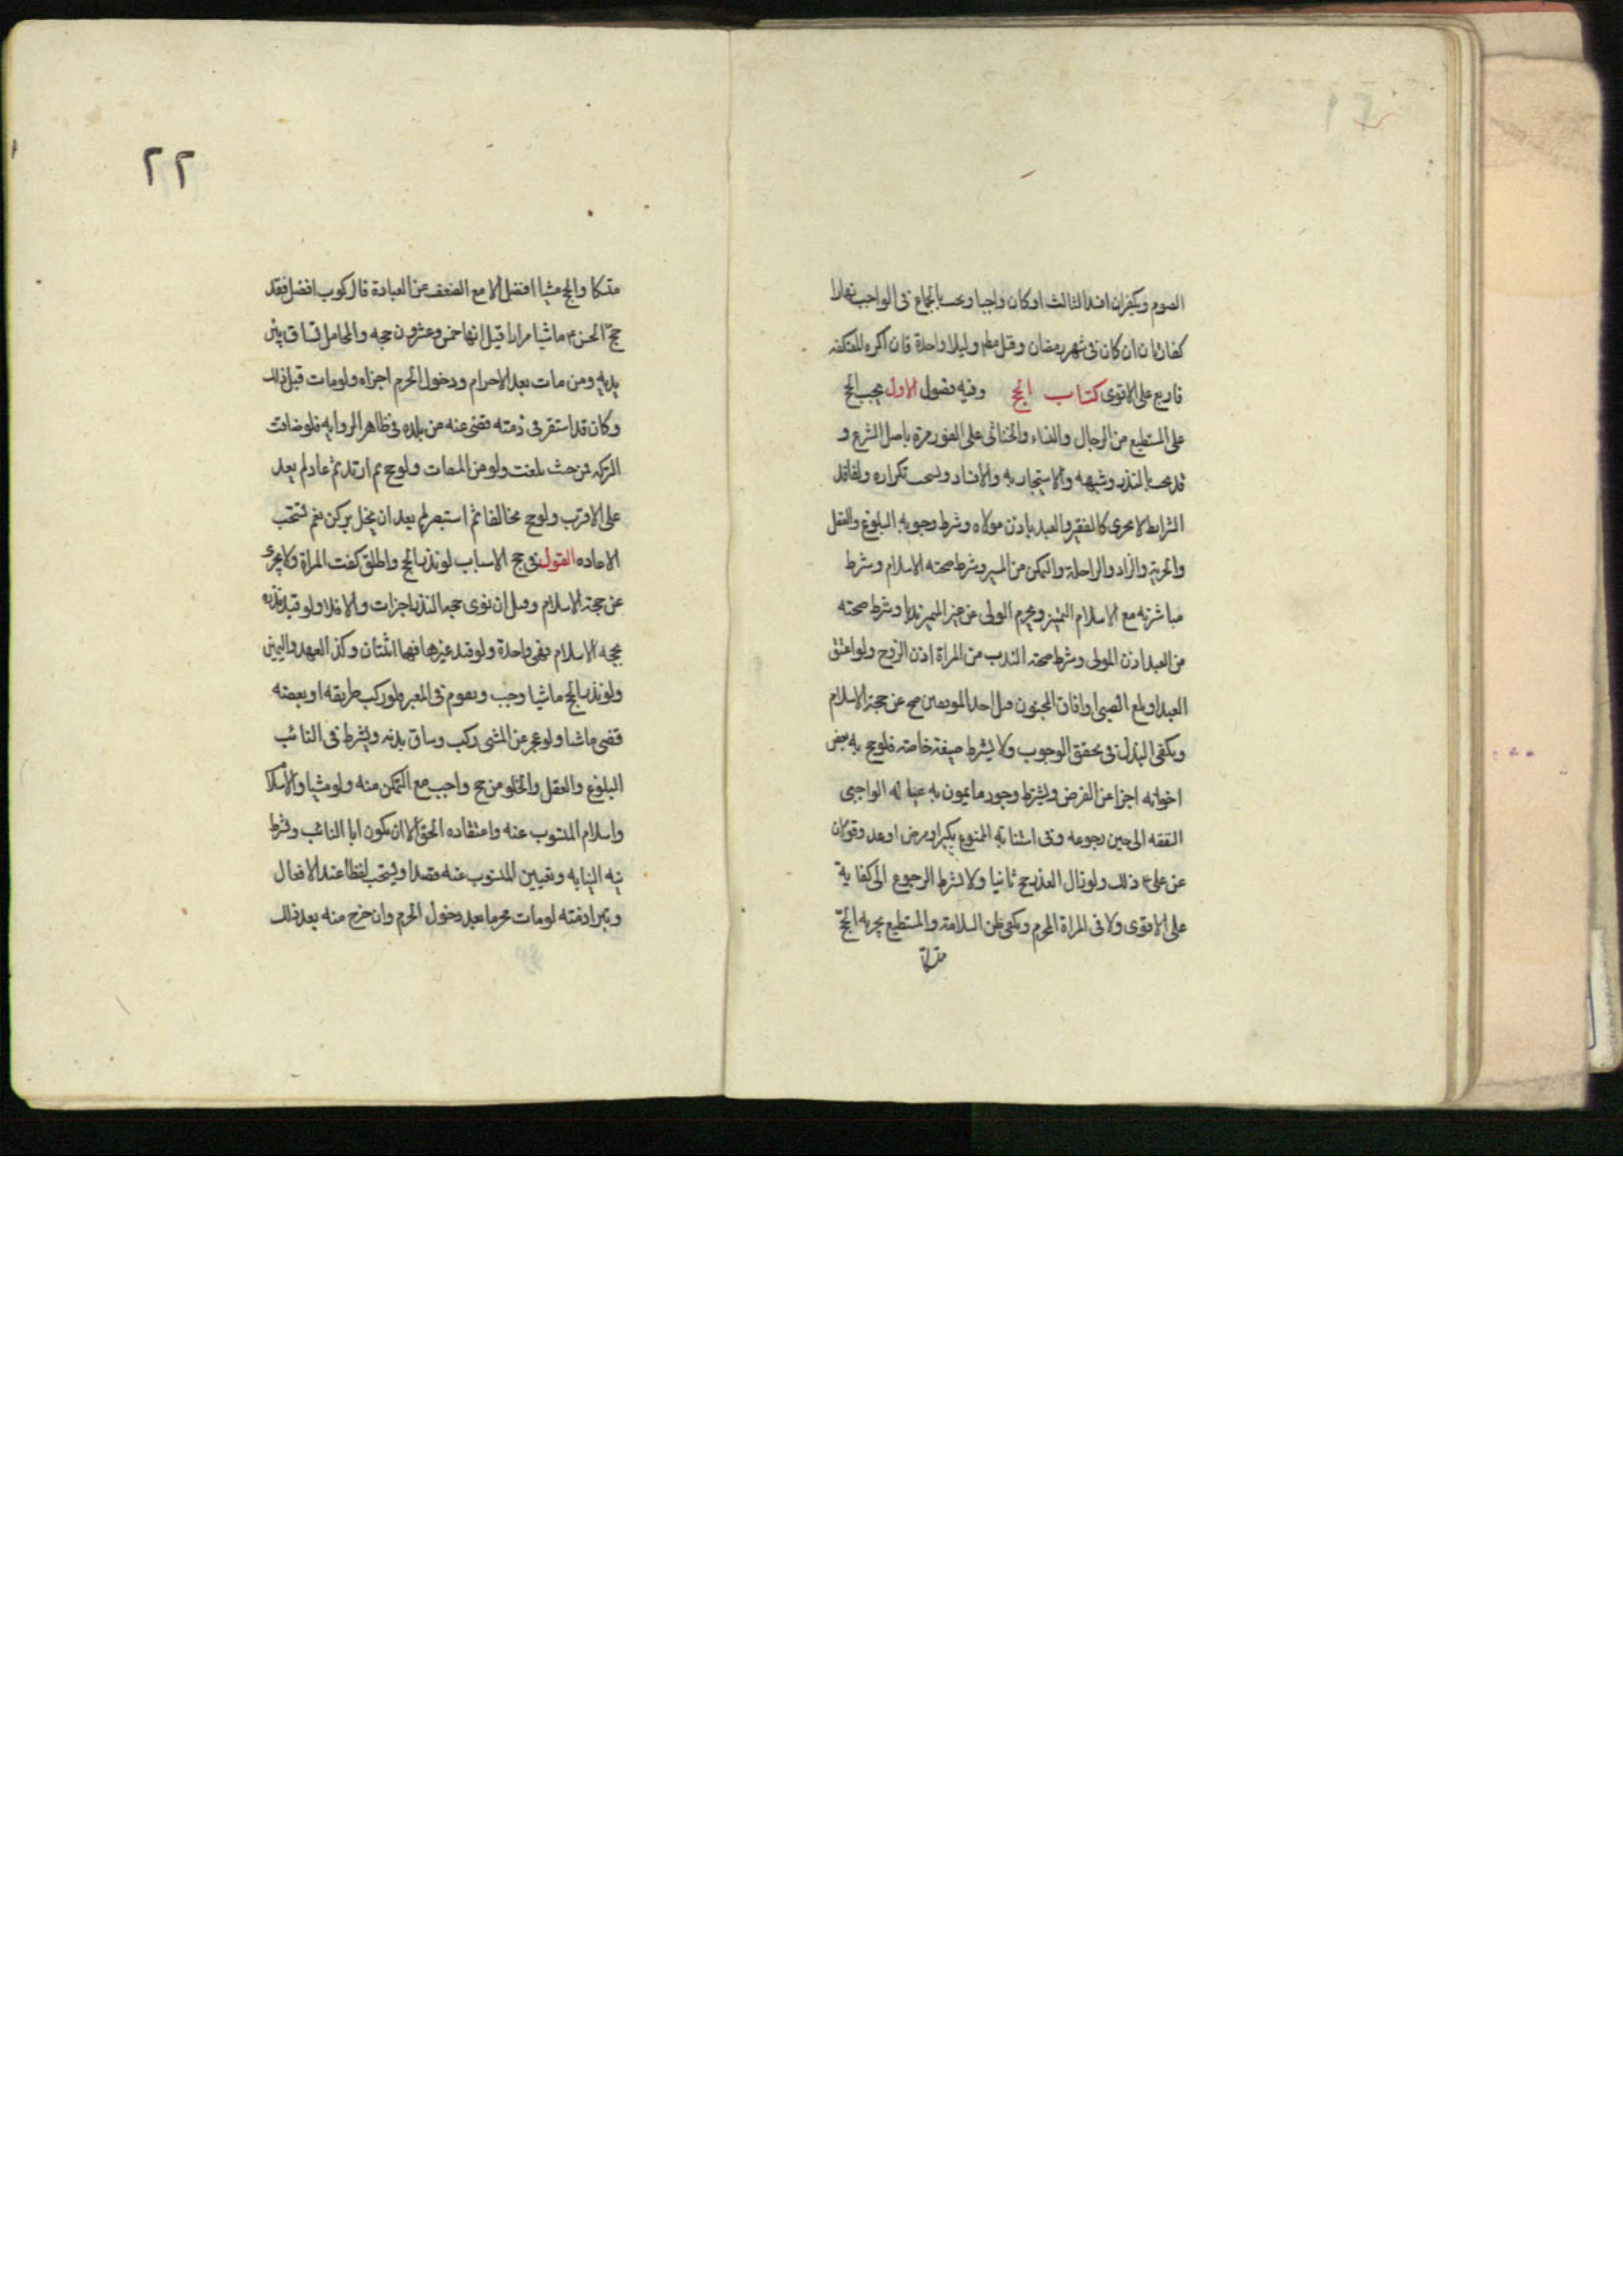 الصوم ويكفران افسد الثالث اوكان واجبا ويجب بالجماع فى الواجب نهارا
كفارتان ان كان فى شهر رمضان وقيل مطم وليلا واحدة فان اكره المعتكفه
فاربع على الاقوى كتاب الحج وفيه فصول الاول يجب الحج
على المستطيع من الرجال والنساء والخناثى على الفور مرة باصل الشرع و
قد يجب بالنذر وشبهه والاستيجار به والافساد ويستحب تكراره ولفاقد
الشرايط لا يجزى كالفقير والعبد باذن مولاه وشرط وجوبه البلوغ والعقل
والحرية والزاد والراحلة والتمكن من المسير وشرط صحته الاسلام وشرط
مباشرته مع الاسلام التميز ويحرم الولى عن غير المميز ندبا وشرط صحته
من العبد اذن المولى وشرط صحة الندب من المراة اذن الزوج ولو اعتق
العبد او بلغ الصبى او افاق المجنون قبل احد الموقفين صح عن حجة الاسلام
ويكفى البذل فى تحقق الوجوب ولا يشترط صيغة خاصة فلو حج به بعض
اخوانه اجزا عن الفرض ويشترط وجود مايمون به عياله الواجبى
النفقه الى حين رجوعه وفى استنابة الممنوع بكبر او مرض او عدو قولان
عن على ع ذلك ولو زال العذر حج ثانيا ولا يشترط الرجوع الى كفاية
على الاقوى ولا فى المراة المحرم ويكفى ظن السلامة والمستطيع يجزيه الحج
متسكا
٢٢
متسكا والحج مشيا افضل الا مع الضعف عن العبادة فالركوب افضل فقد
حج الحسن ع ماشيا مرارا قيل انها خمس وعشرون حجه والمحامل تساق بين
يديه ومن مات بعد الاحرام ودخول الحرم اجزاه ولو مات قبل ذلك
وكان قد استقر فى ذمته قضى عنه من بلده فى ظاهر الروايه فلو ضاقت
التركه فمن حيث بلغت ولو من الميقات ولو حج ثم ارتد ثم عاد لم يعد
على الاقرب ولو حج مخالفا ثم استبصر لم يعد ان يخل بركن نعم تستحب
الاعاده القول فى حج الاسباب لو نذر الحج واطلق كفت المراة ولا يجزى
عن حجة الاسلام وقيل ان نوى حجه النذر اجزات والا فلا ولو قيد نذره
بحجه الاسلام فهى واحدة ولو قيد غيرها فهما اثنتان وكذا العهد واليمين
ولو نذر الحج ماشيا وجب ويقوم فى المعبر فلو ركب طريقه او بعضه
قضى ماشيا ولو عجز عن المشى ركب وساق بدنه ويشترط فى النائب
البلوغ والعقل والخلو من حج واجب مع التمكن منه ولو مشيا والاسلا
واسلام المنوب عنه واعتقاده الحق الا ان يكون ابا النائب وشرط
نيه النيابه وتعيين المنوب عنه قصدا ويستحب لفظا عند الافعال
وتبرا ذمته لو مات محرما بعد دخول الحرم وان خرج منه بعد ذلك